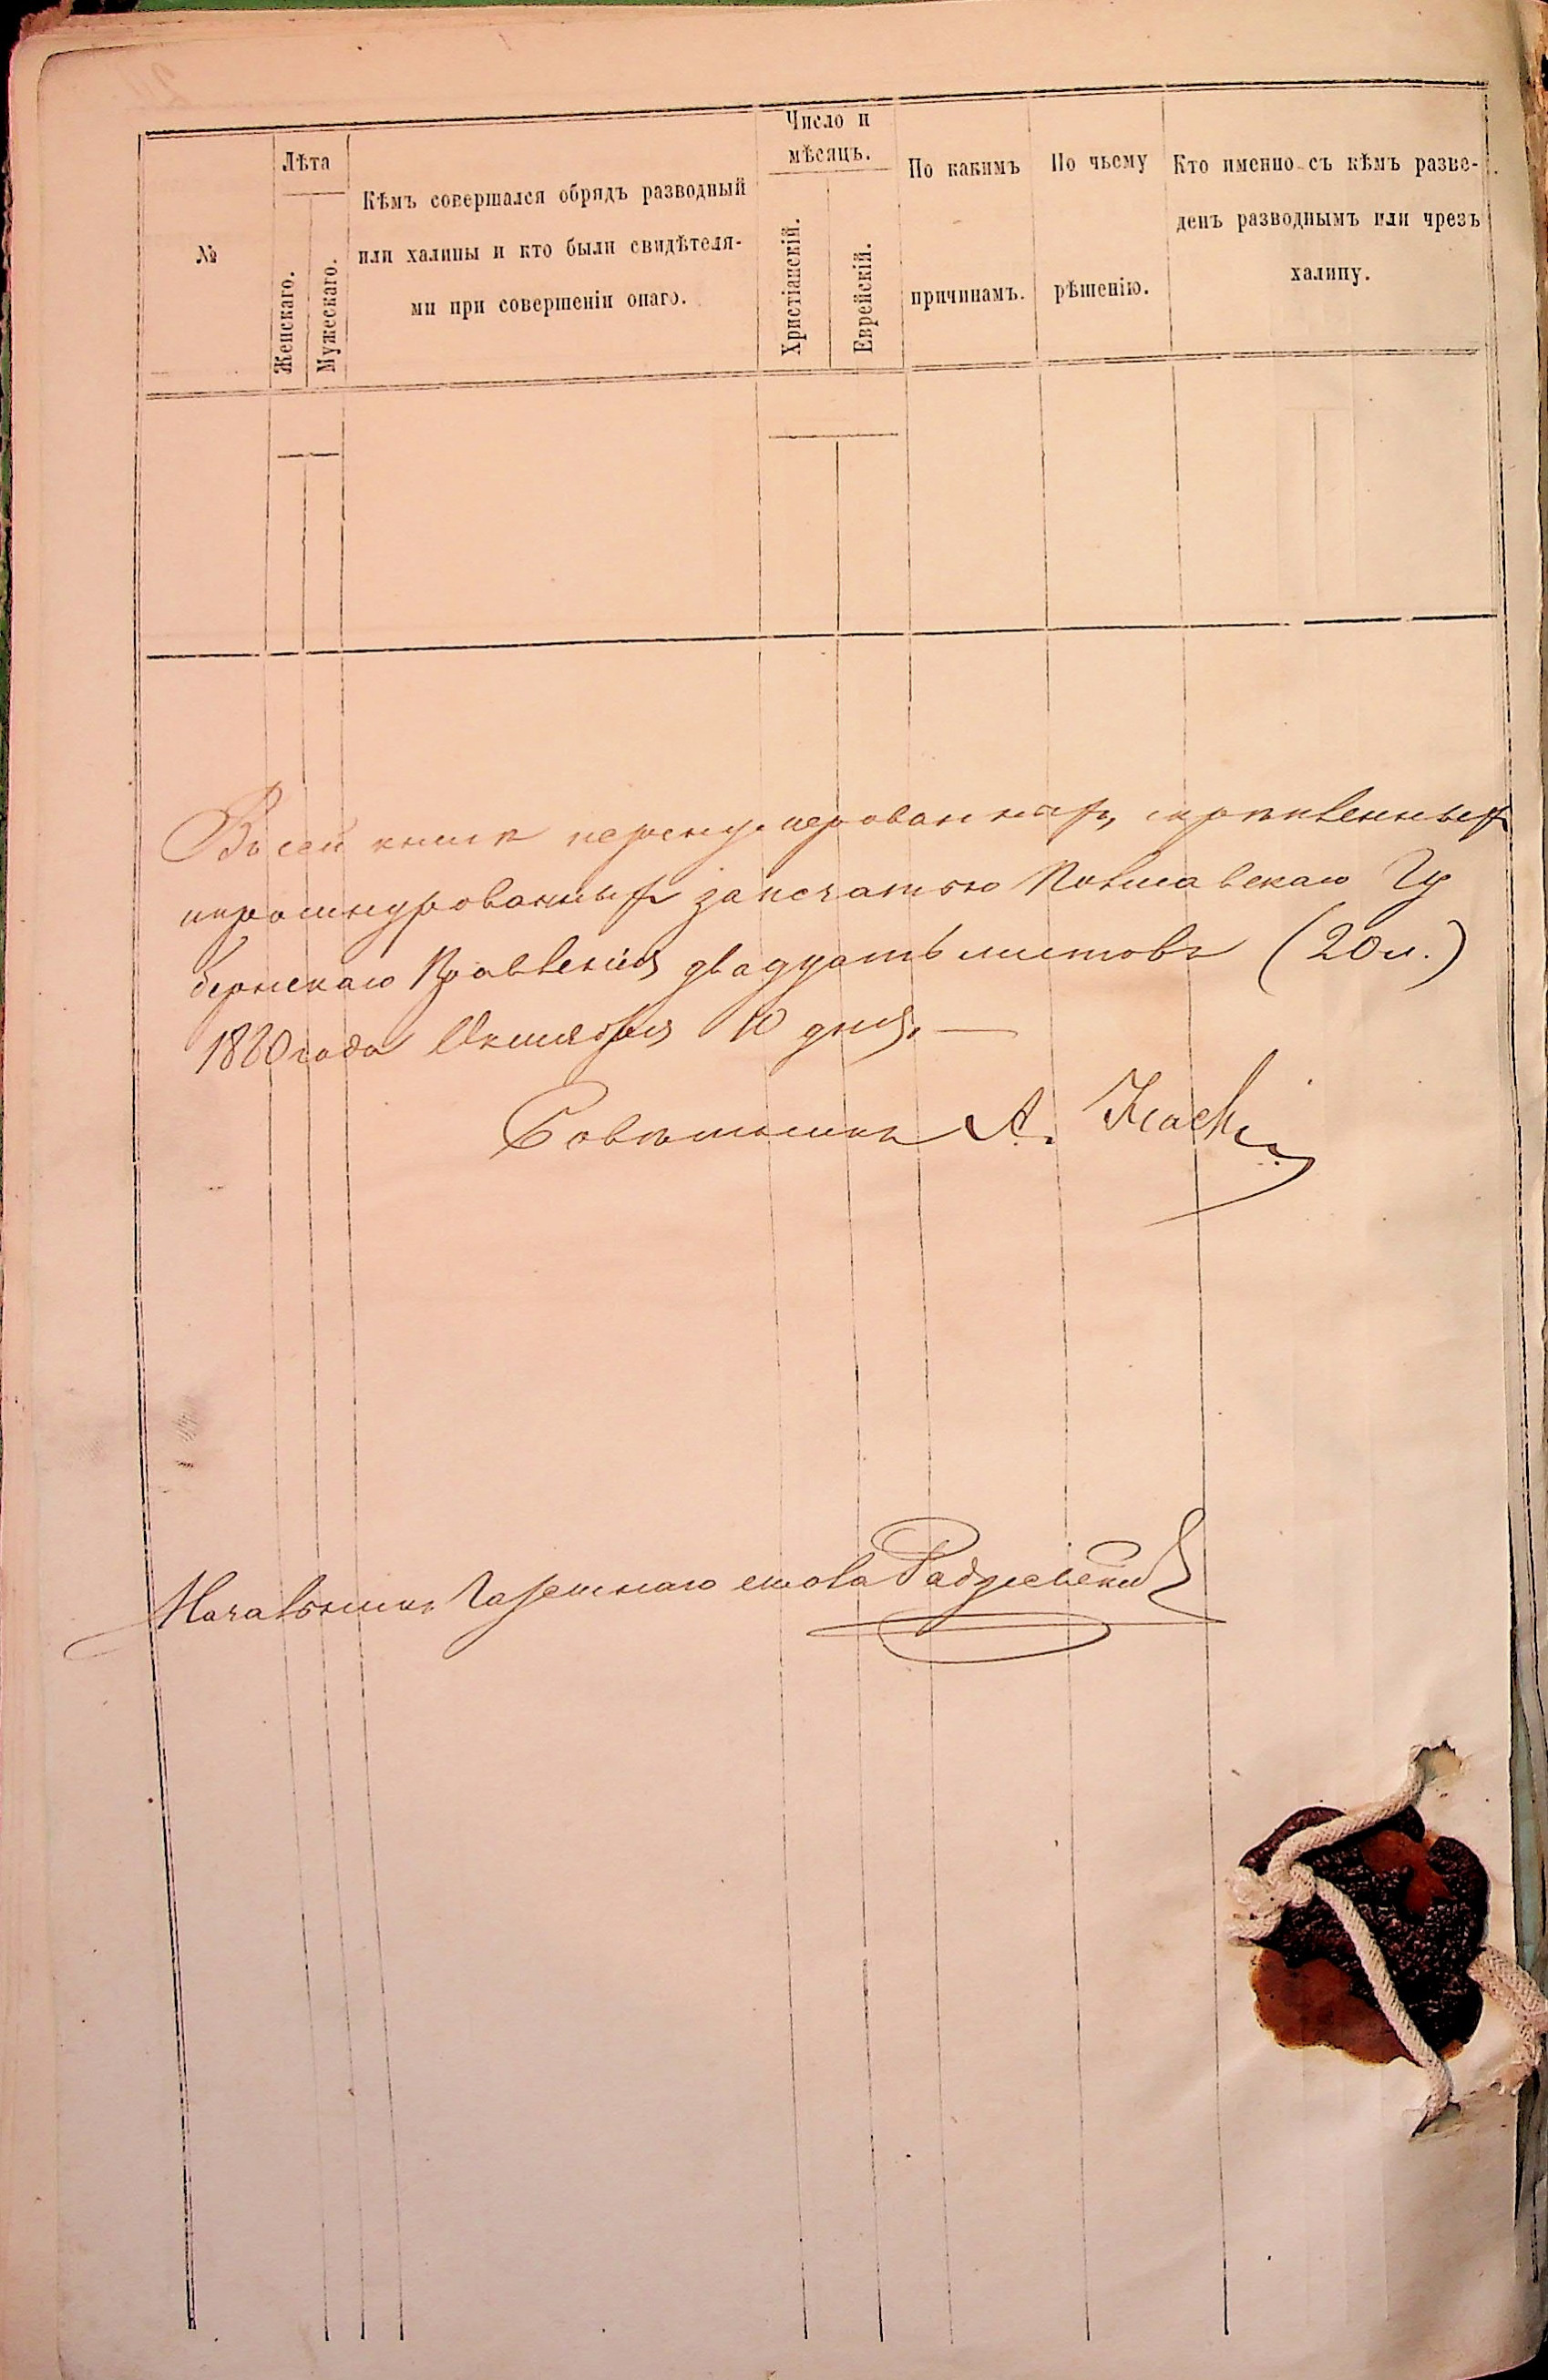 №
Лѣта
Женскаго.
Мужескаго.
Кѣмъ совершался обрядъ разводный
или халицы и кто были свидѣтеля-
ми при совершеніи онаго.
Число и
мѣсяцъ.
Христіанскій.
Еврейскій.
По какимъ
причинамъ.
По чьему
рѣшенію.
Кто именно съ кѣмъ разве-
денъ разводнымъ или чрезъ
халицу.
Въ сей книгѣ перенумерованныхъ, скрѣпленныхъ
и прошнурованныхъ за печатью Полтавскаго Гу
бернскаго Правленія двадцать листовъ (20 л.)
1880 года Октября 10 дня. —
Совѣтникъ А.
Начальникъ Газетнаго стола